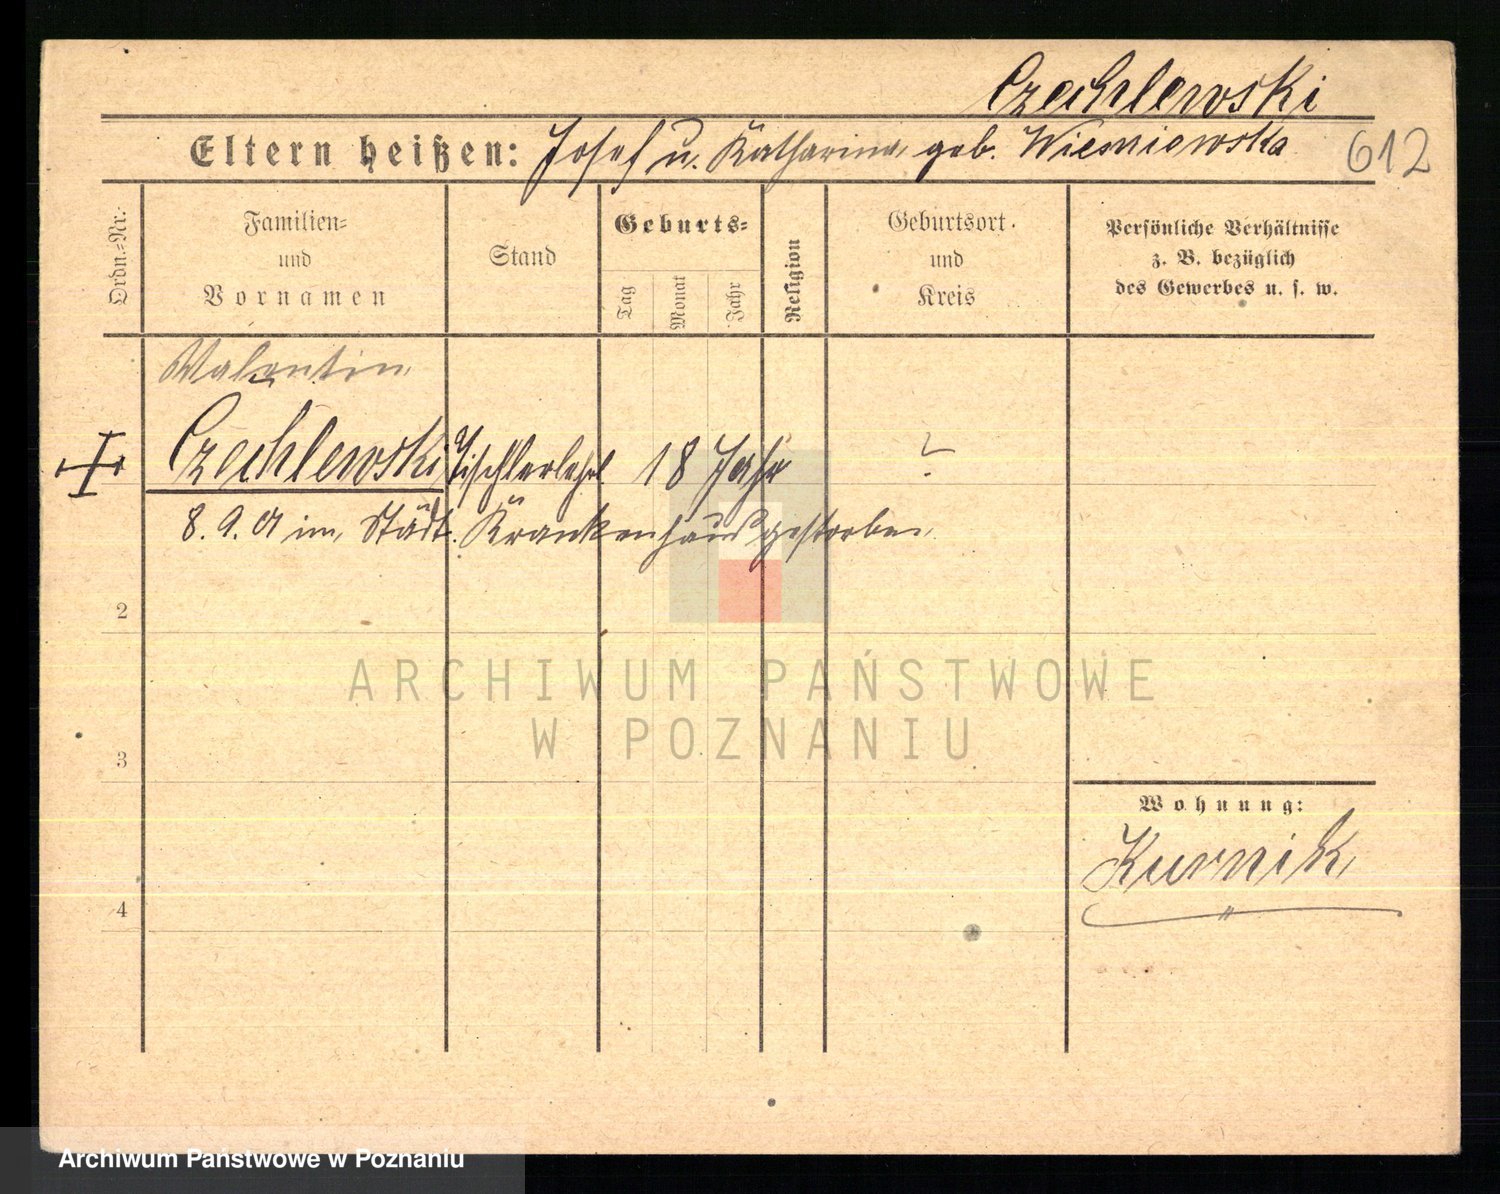 Czechlewski
Eltern heißen: Josef u. Katharina geb. Wiesniewska 612
Ordn.=Nr.
Familien=
und
Vornamen
Stand
Geburts=
Tag
Monat
Jahr
Religion
Geburtsort
und
Kreis
Persönliche Verhältnisse
z. B. bezüglich
des Gewerbes u. s. w.
Valentin
Czechlewski Tischlerlehrl 18 Jahr ?
8. 9. 01 im Städt. Krankenhaus gestorben.
2
ARCHIWUM PAŃSTWOWE
W POZNANIU
3
Wohnung:
Kurnik
4
Archiwum Państwowe w Poznaniu